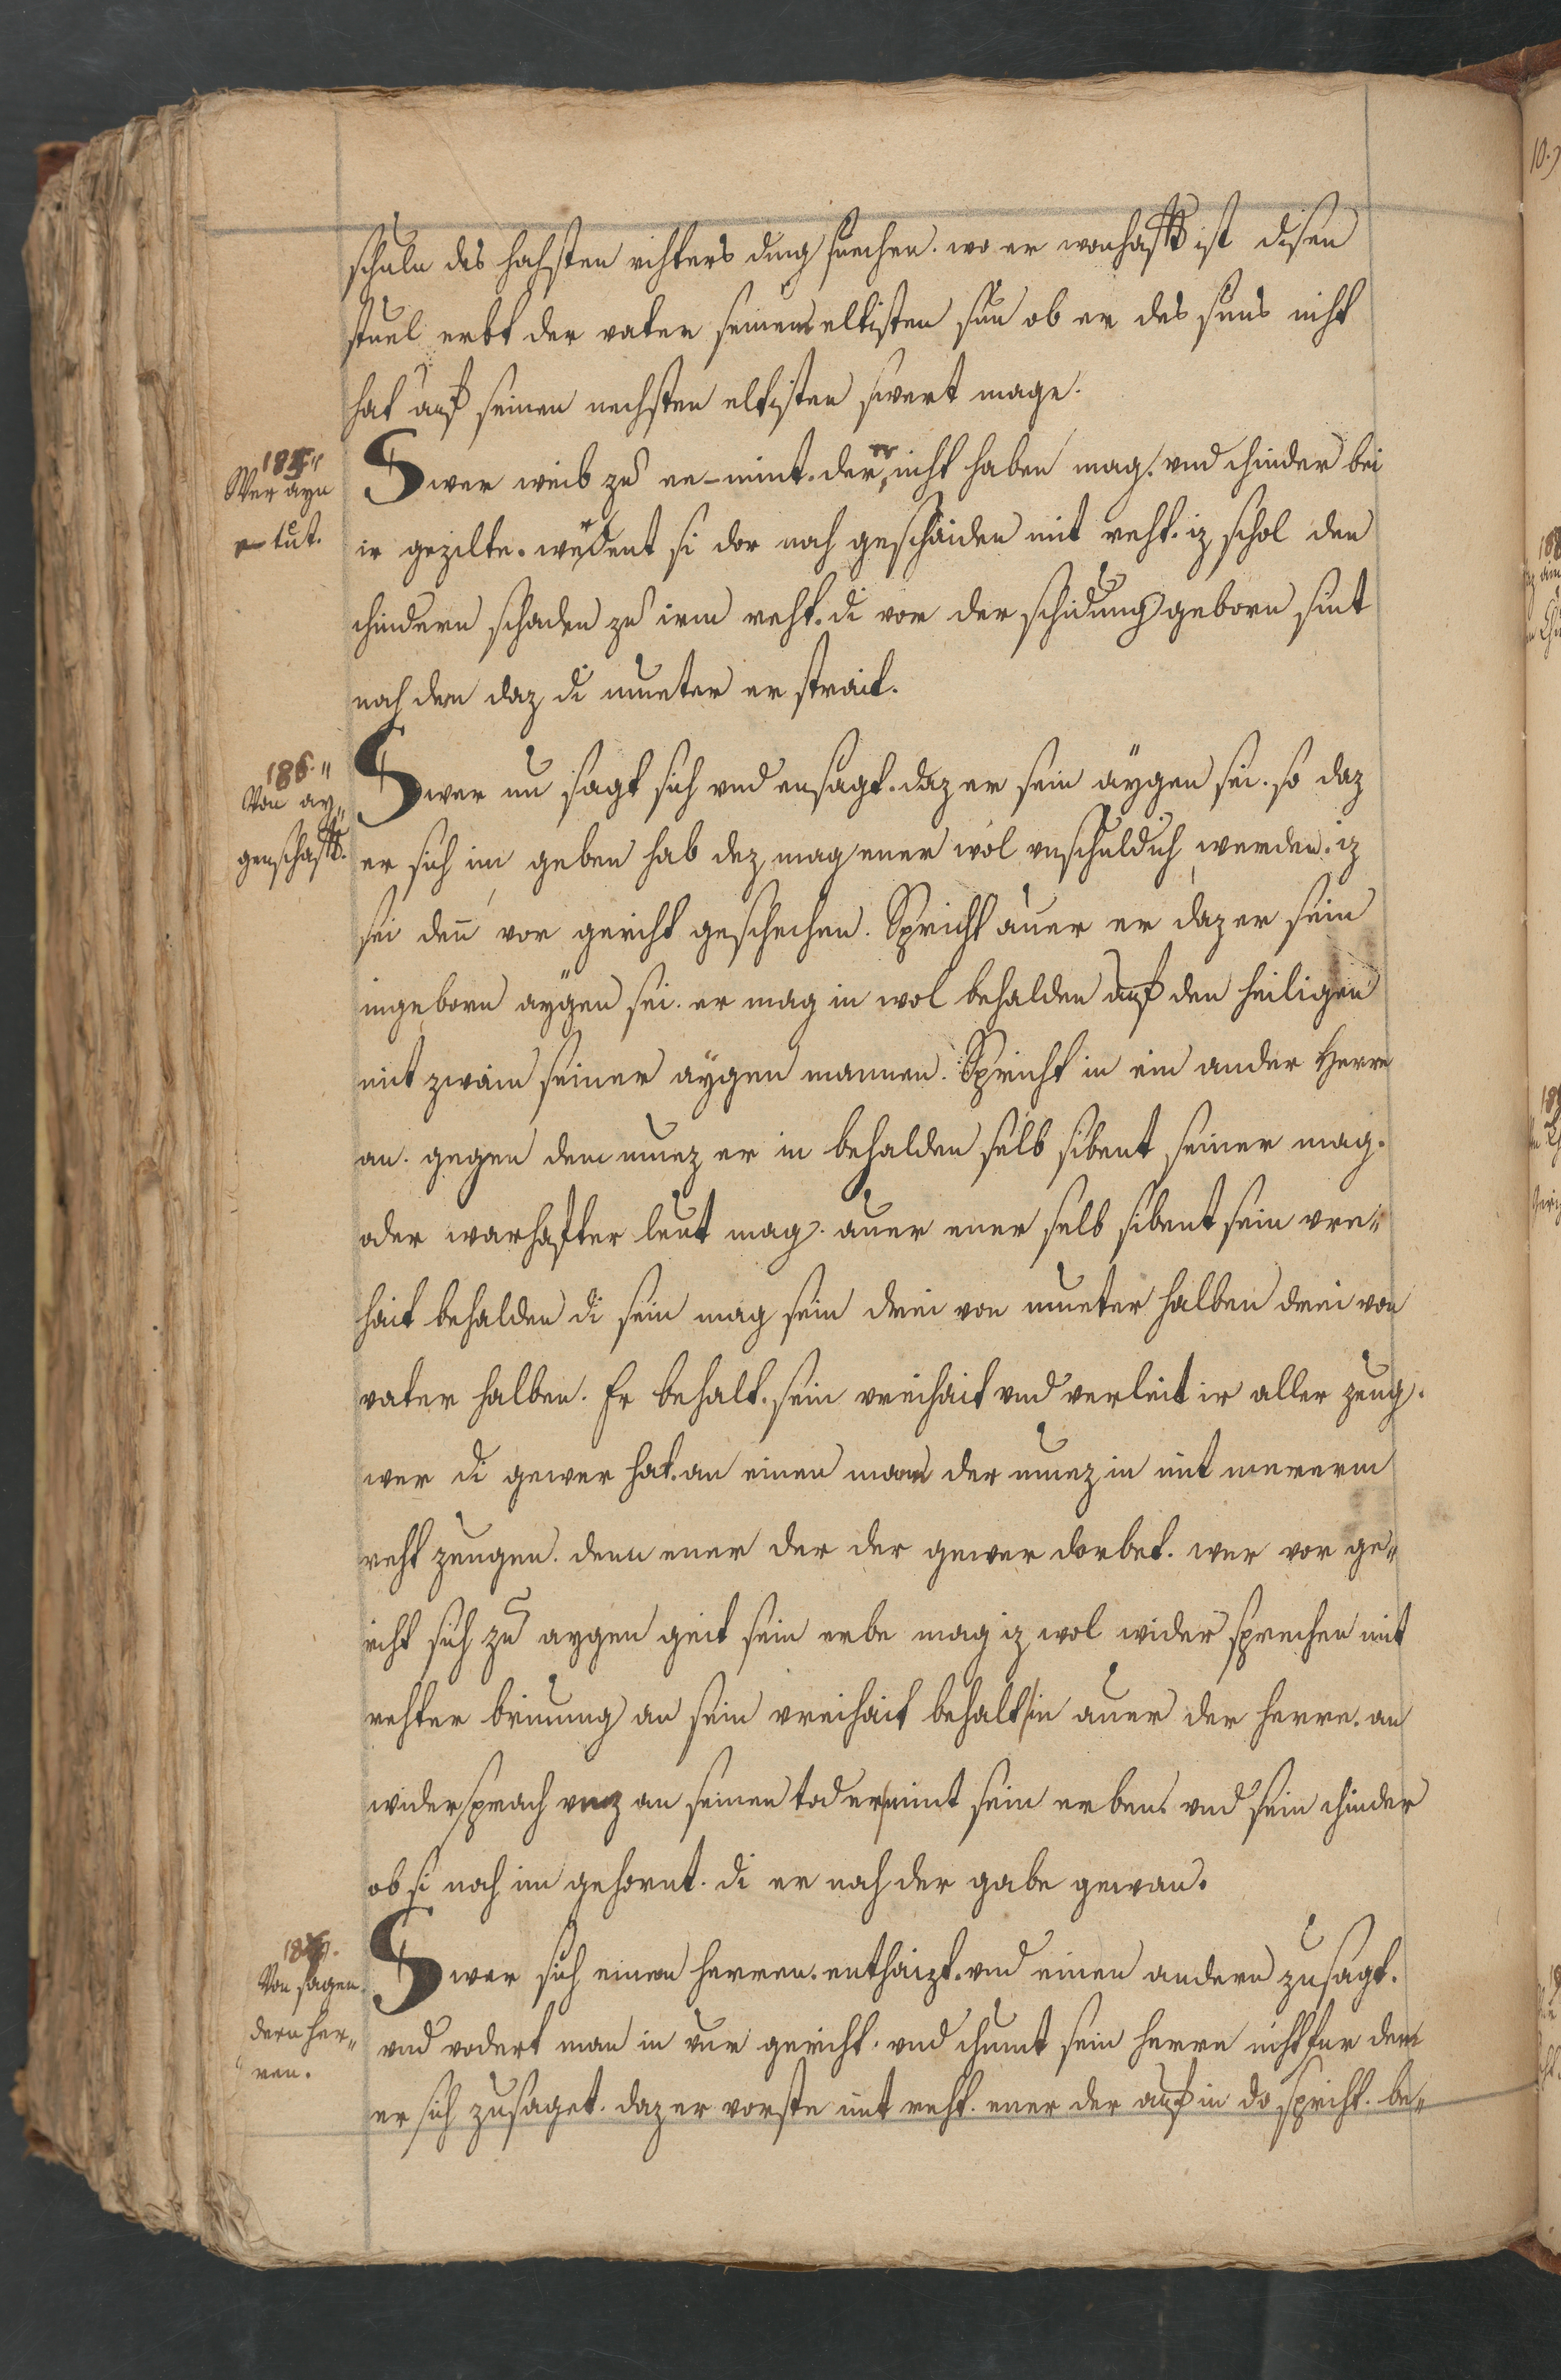 schuln des hohsten rihters ding suechen. wo er wonhafft ist disen
stuel erbt der vater seinem eltisten sun ob er des suns niht
hat auf seinen nechsten eltisten swert mage.
185.
Wer ayn
e tut.
Swer weib zu ee nimt. der er niht haben mag. vnd chinder bei
ir gezilte. werdent si dor noch geschaiden mit reht. iz schol den
chindern schaden zu irm reht. di vor der schidung geborn sint
noh dem daz di mueter er strait.
186.
Von ay„
genschafft.
Swer nu sagt sich vnd ensagt. daz er sein aygen sei. so daz
er sich im geben hab dez mag ener wol vnschuldich werden. iz
sei den vor gericht geschechen. Spricht auer er daz er sein
ingeborn aygen sei. er mag in wol behalden auf den heiligen
mit zwain seiner aygen mannen. Spricht in ein ander Herre
an. gegen dem muez er in behalden selb sibent seiner mag.
oder warhafter leut mag. auer ener selb sibent sein vrei„
hait behalden di sein mag sein drei von mueter halben drei von
vater halben. Er behalt. sein vreihait vnd verleit ir aller zeug.
wer di gewer hat. an einen man der muez in mit mererm
reht zeugen. denn ener der der gewer dorbet. wer vor ge„
riht sich zu aygen geit sein erbe mag iz wol wider sprechen mit
rehter brinung an sein vreihait behalt in auer der herre. an
widersprach vnz an seinen tod er nimt sein erben. vnd sein chinder
ob si noch im gehornt. di er noh der gabe gewan.
187.
Von sagen
dern her„
ren.
Swer sich einem herren. enthaizt. vnd einen andern zusagt.
vnd vodert man in vur gericht. vnd chumt sein herre niht fur dem
er sich zusaget. daz er vorste mit reht. ener der auf in do spricht. be„